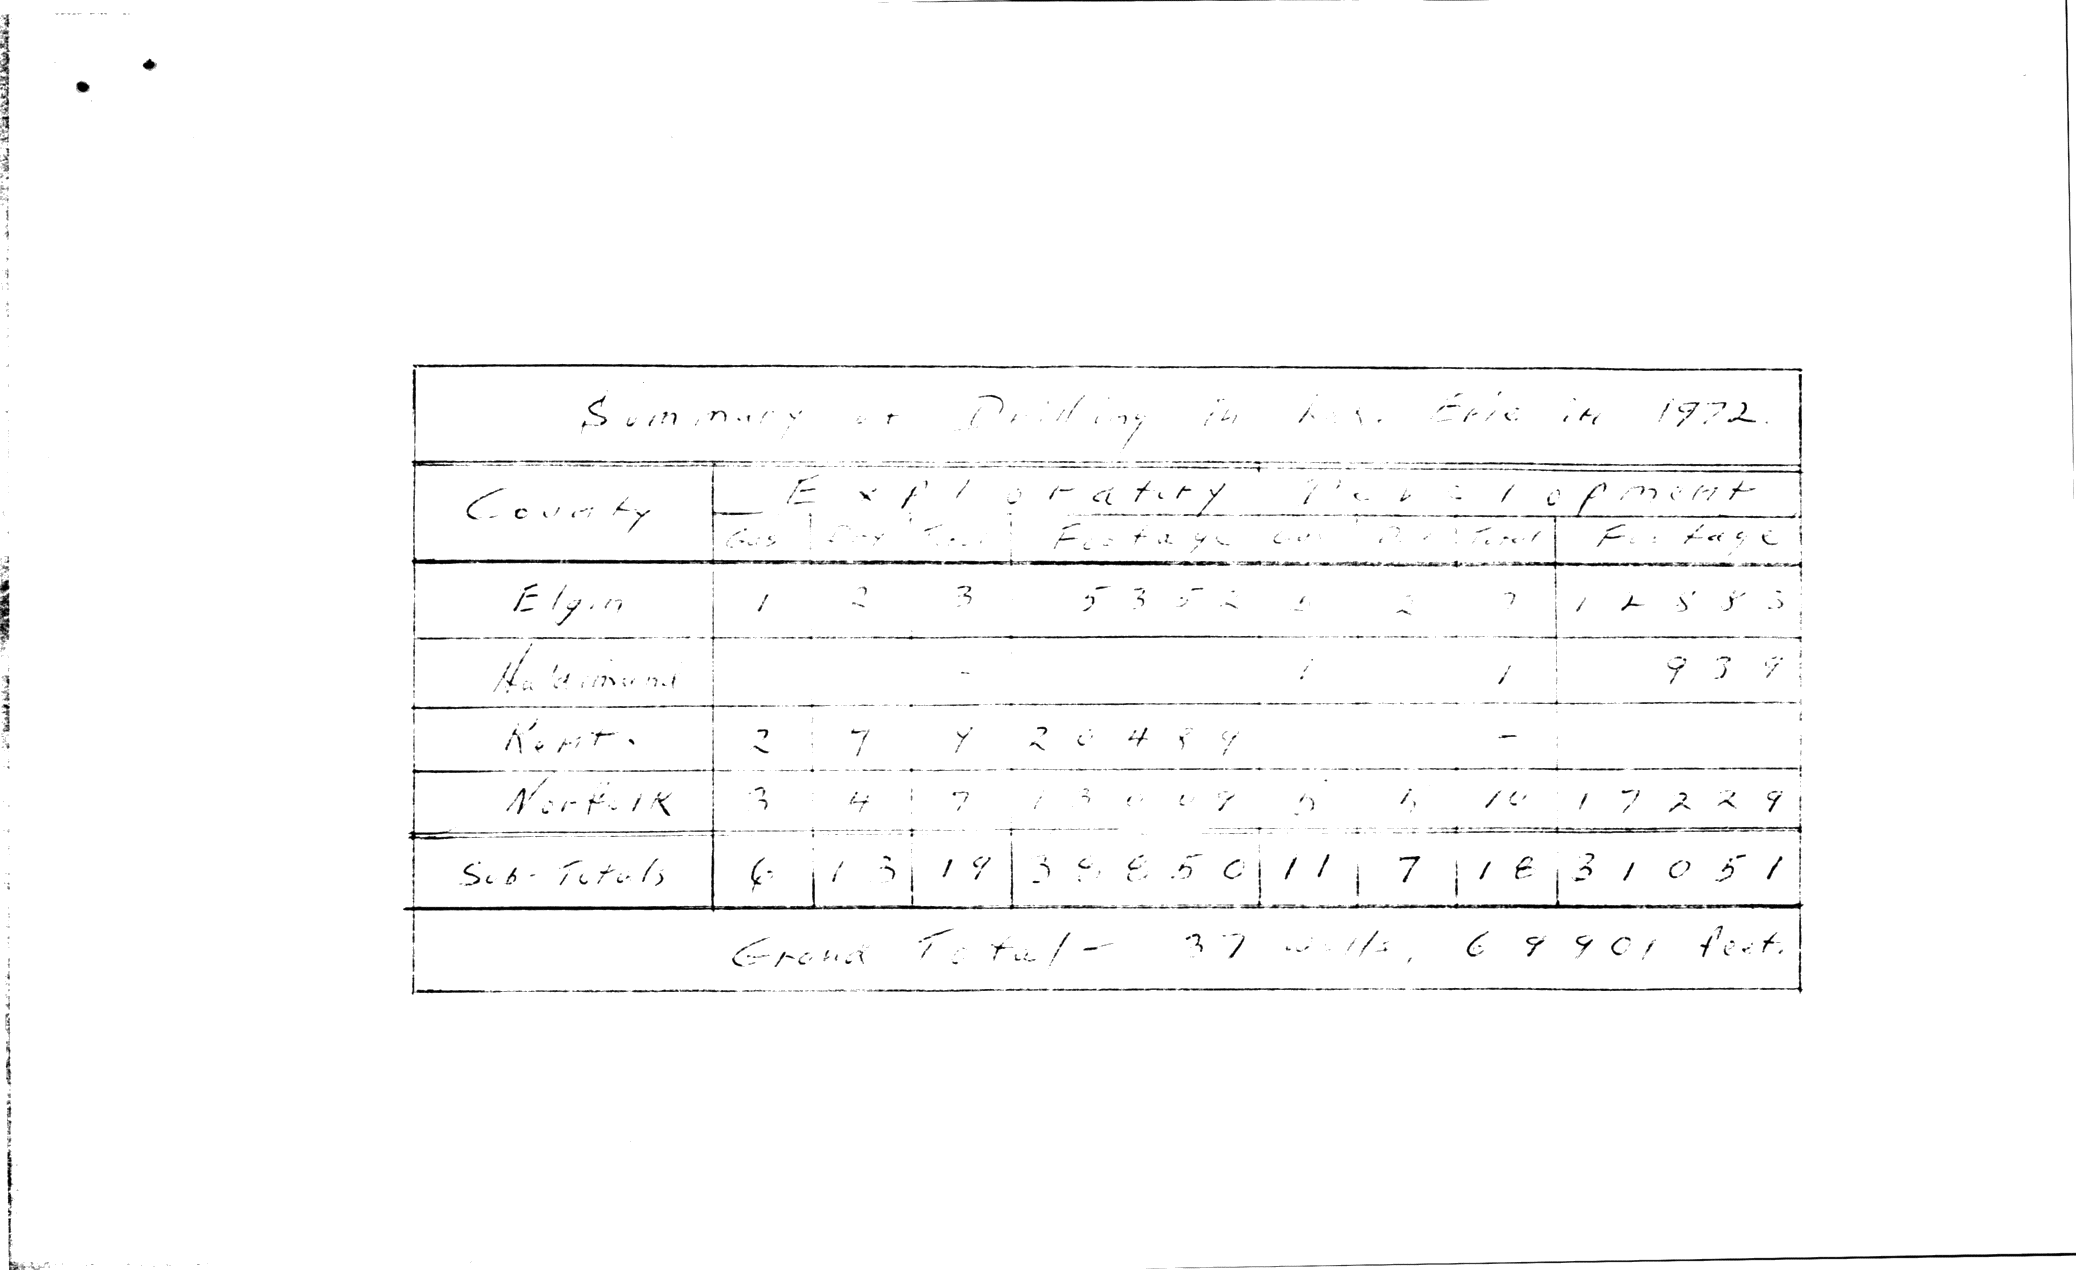 Summary of Drilling in Lake Erie in 1972.
County Exploratory Development
Gas Dry Total Footage Gas Dry Total Footage
Elgin 1 2 3 5352 5 2 7 12883
Haldimand - 1 1 939
Kent. 2 7 9 20489 -
Norfolk 3 4 7 13009 5 5 10 17229
Sub-Totals 6 13 19 38850 11 7 18 31051
Grand Total - 37 wells, 69901 feet.